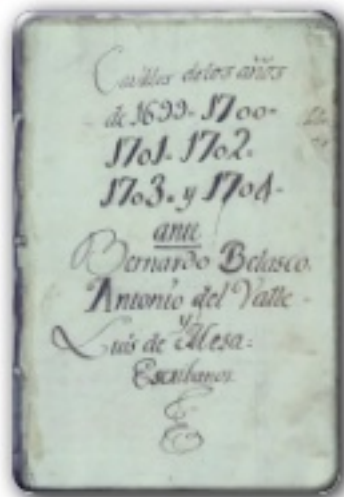 Cavildos delos años
de 1699. 1700.
1701. 1702.
1703. y 1704.
ante
Bernardo Belasco.
Antonio del Valle.
y
Luis de Mesa.
Escribanos.